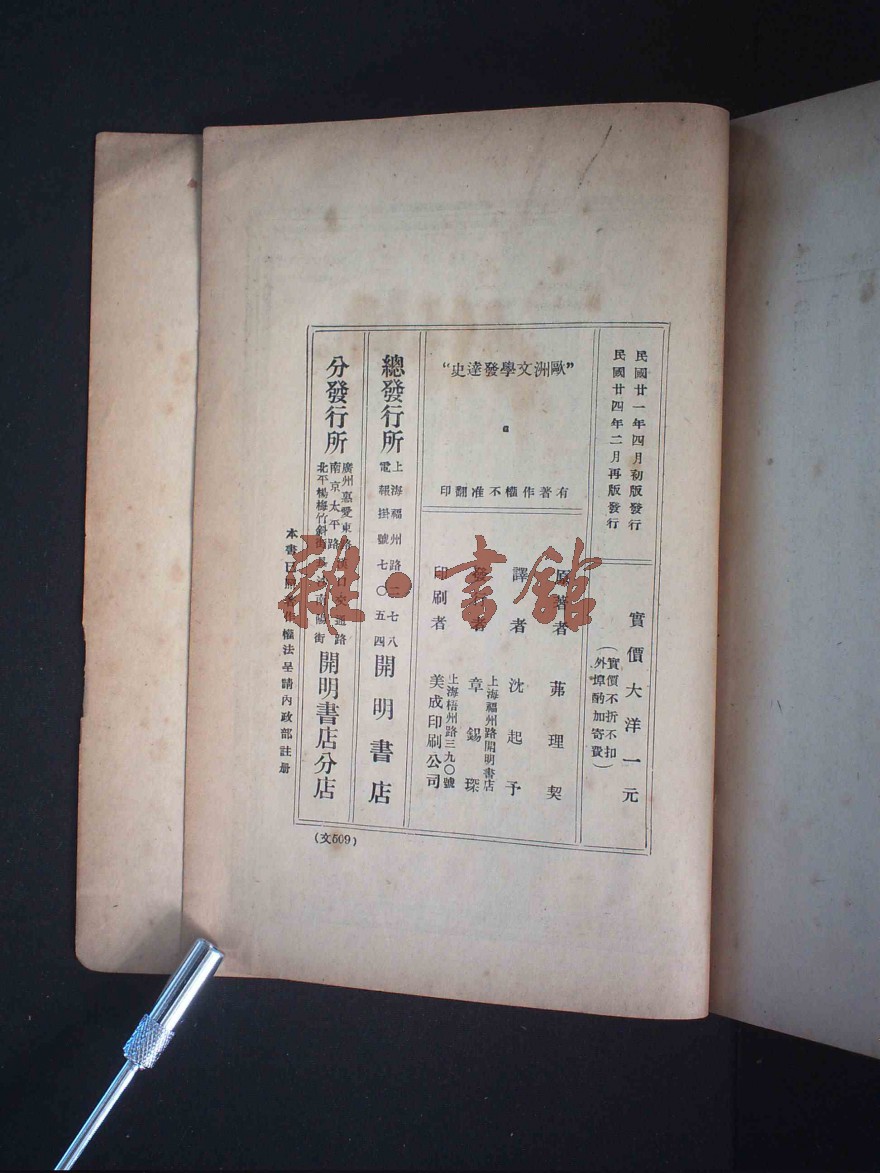 民國廿一年四月初版發行
民國廿四年二月再版發行
實價大洋一元
（實價不折不扣
外埠酌加寄費）
“歐洲文學發達史”
有著作權不准翻印
原著者 茀理契
譯者 沈起予
發行者 章錫琛
上海福州路開明書店
印刷者 美成印刷公司
上海梧州路三九〇號
總發行所 上海福州路二七八
電報掛號七〇五四
開明書店
分發行所
廣州惠愛東路 漢口交通路
南京太平路 長沙南陽街
北平楊梅竹斜街
開明書店分店
本書已照著作權法呈請內政部註册
(文509)
雜·書館